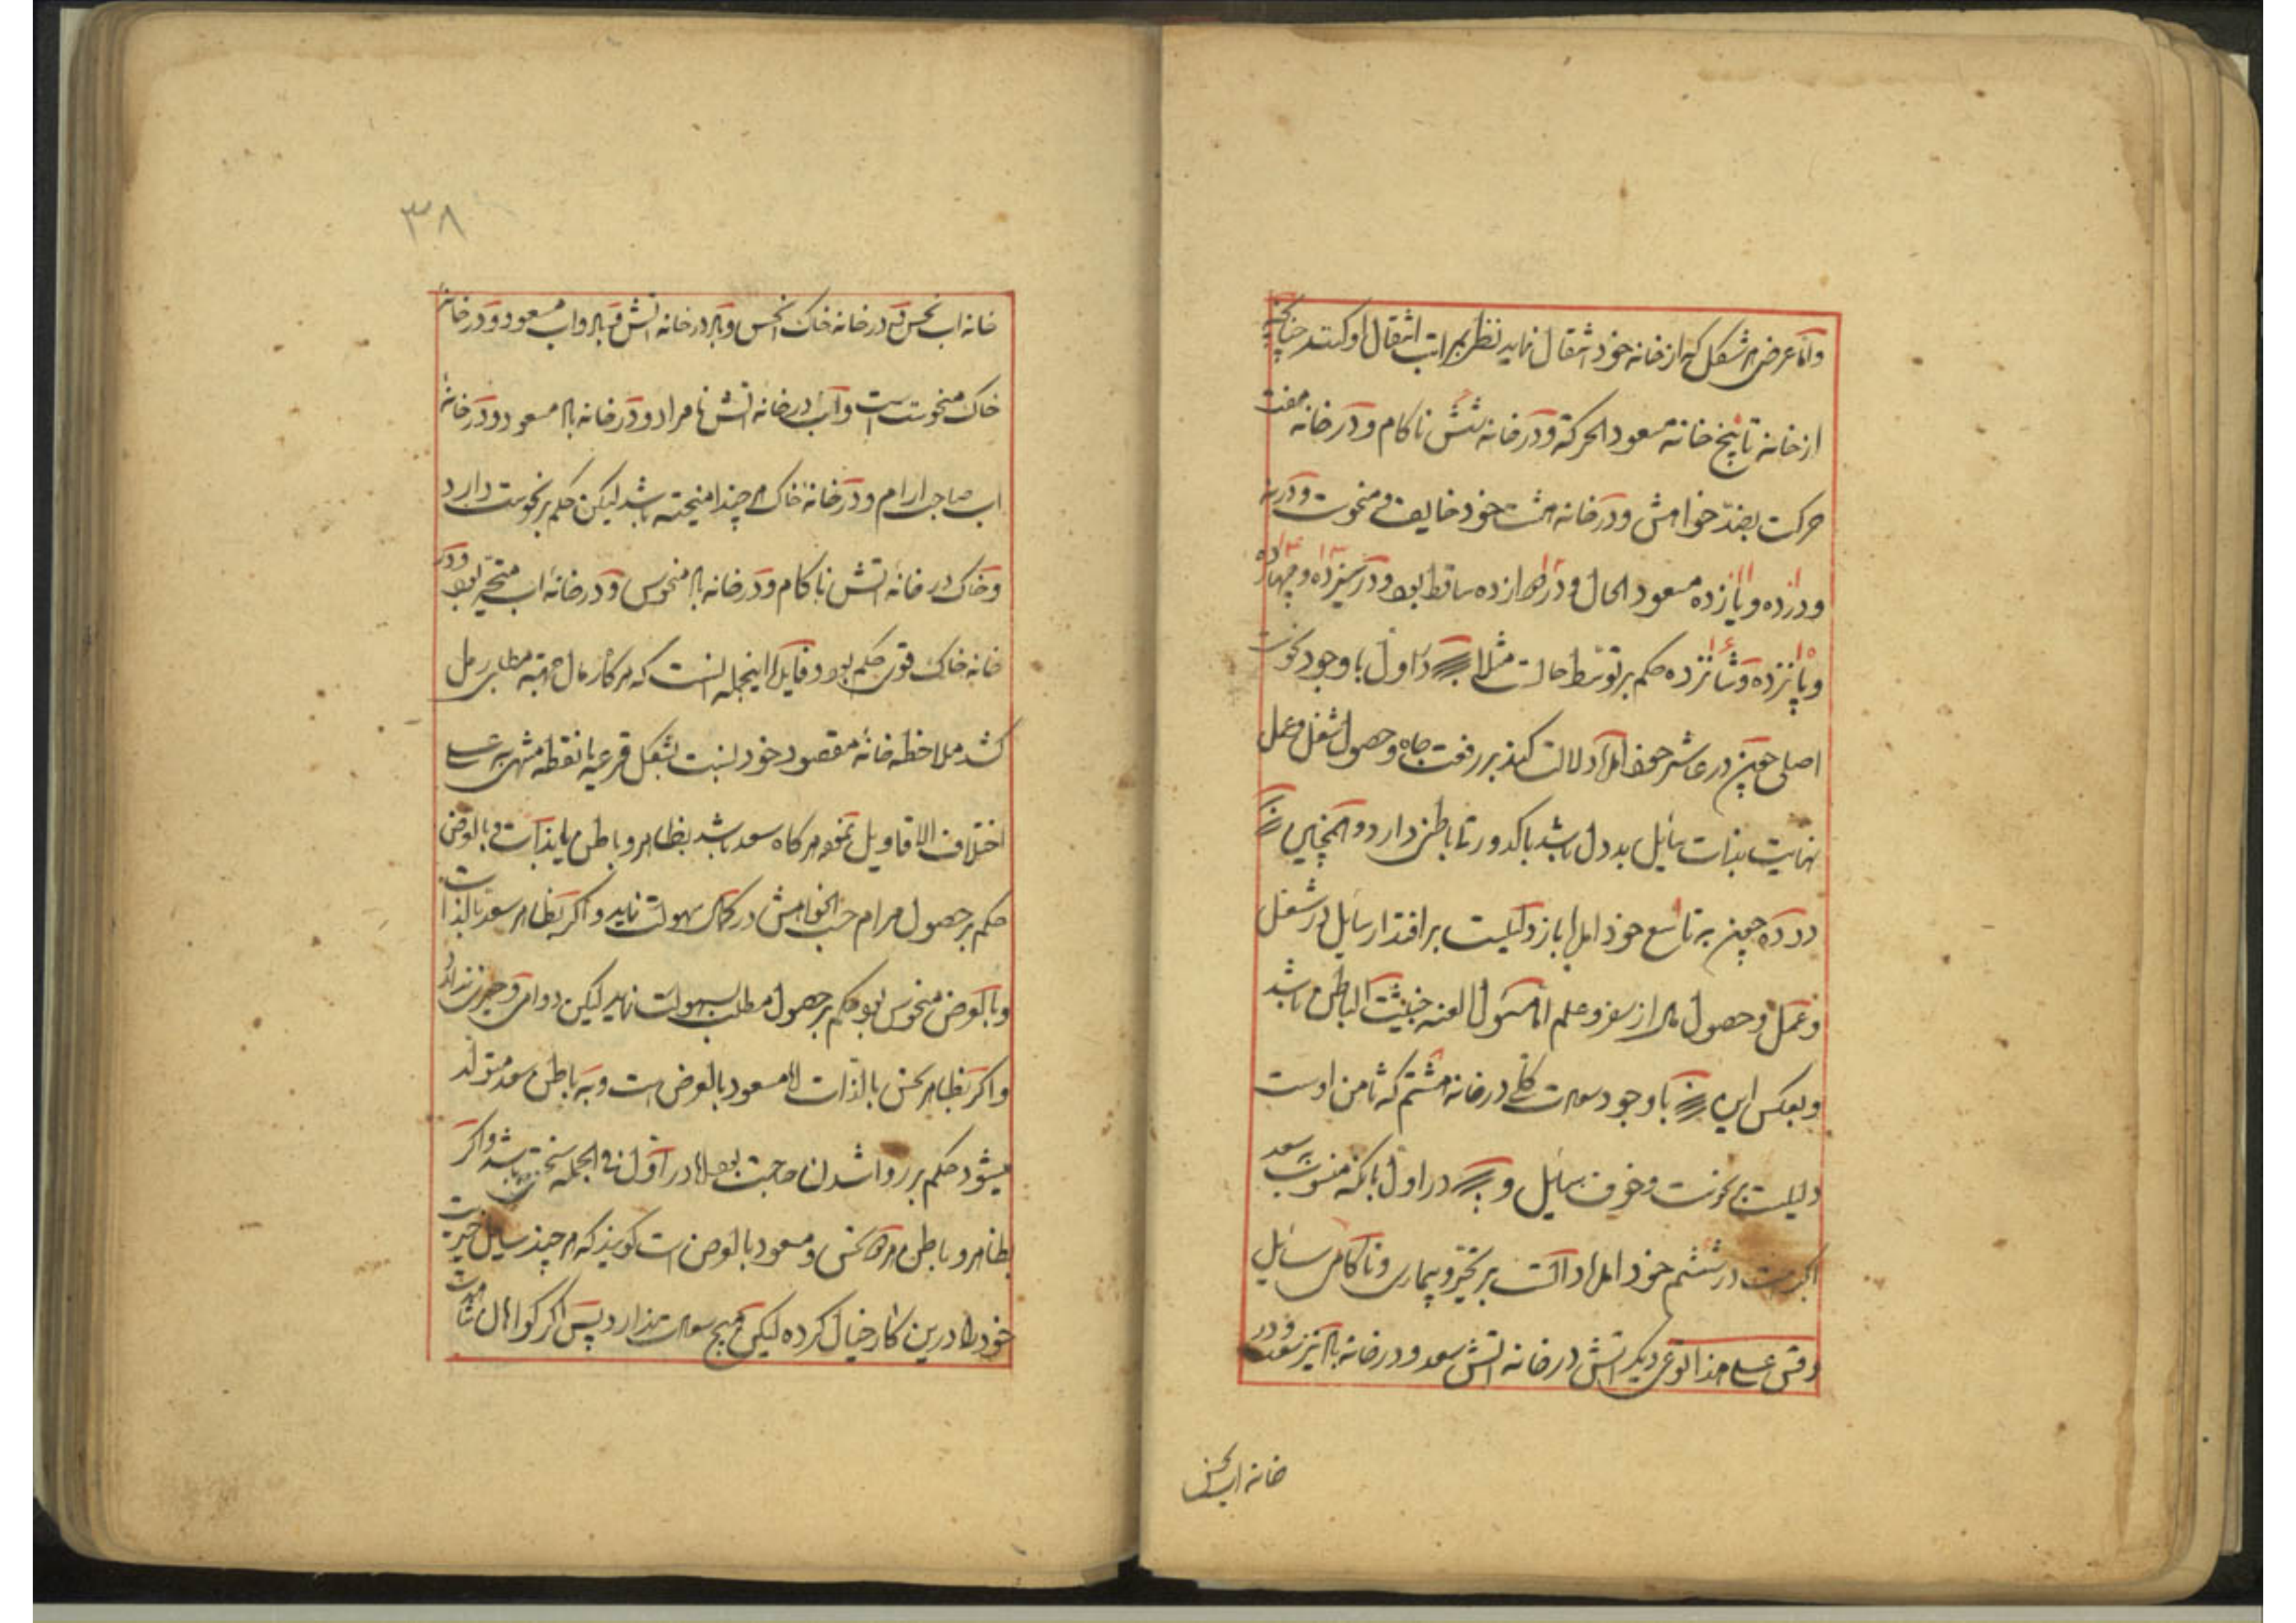 واما عرض هر شکل که از خانه خود انتقال نماید نظر بمراتب انتقال او کنند چنانچه
از خانه تا پنج خانه مسعود الحرکة و در خانه شش ناکام و در خانه هفت
حرکت بضد خواهش و در خانه هشت خود خایف و منحوست و در نه
و در ده و یازده مسعود الحال و در دوازده ساقط بود و در سیزده و چهارده
و پانزده و شانزده حکم بر توسط حالت مثلا در اول با وجود نحوست
اصلی چون در عاشر خود آید دلالت کند بر رفعت جاه و حصول شغل و عمل
نهایت بذات سایل بد دل باشد یا کدورت باطن دارد و همچنین
در ده چون به تاسع خود آید باز دلیلست بر اقتدار سایل در شغل
و عمل و حصول از سفر و علم اما مسئول عنه خبیث الباطن باشد
و بعکس این با وجود سعادت کلی در خانه هشتم که ثامن اوست
دلیلست بر حزنت و خوف سایل و در اول با آنکه منسوب سعد
اکبرست در ششم خود آید دالست بر تحیر و بیماری و ناکامی سایل
وقس علی هذا نوعی دیگر آتش در خانه آتش سعد و در خانه باد نیز سعد و در
خانه اب نحس
۳۸
خانه اب نحس و در خانه خاک انحس و باد در خانه آتش و باد و اب مسعود و در خانه
خاک منحوست است و آب در خانه آتش نامراد و در خانه باد مسعود و در خانه
اب صاحب آرام و در خانه خاک هر چند امیخته باشد لیکن حکم بر نحوست دارد
و خاک در خانه آتش ناکام و در خانه باد منحوس و در خانه اب متحیر بود و در
خانه خاک قوی حکم بود و فایده اینجمله انست که هر گاه رمال جهة مطلبی رمل
کشد ملاحظه خانه مقصود خود نسبت بشکل قرعیه یا نقطه منتهی به علی
اختلاف الاقاویل نموده هر گاه سعد باشد بظاهر و باطن یا بذات و بالعرض
حکم بر حصول مرام حسب الخواهش در کمال سهولت نماید و اگر بظاهر سعد بالذات
و بالعرض منحوس بود حکم بر حصول مطلب بسهولت نماید لیکن دوامی و خیری ندارد
و اگر بظاهر نحس بالذات اما مسعود بالعرض است و به باطن سعد متولد
میشود حکم بر روا شدن حاجت بود اما در اول فی الجمله سختی باشد و اگر
بظاهر و باطن هر دو نحس و مسعود بالعرض است گویند که هر چند سایل خیریت
خود را درین کار خیال کرده لیکن هیچ سعادت ندارد پس اگر گواهان شاهدت